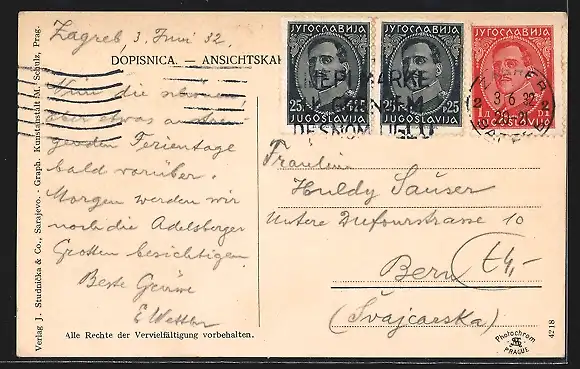 Zagreb, 3. Juni 32.
DOPISNICA. — ANSICHTSKAR
Nun die schönen,
aber etwas anstren-
genden Ferientage
bald vorüber.
Morgen werden wir
noch die Adelsberger
Grotten besichtigen.
Beste Grüsse
E. Wettler
Alle Rechte der Vervielfältigung vorbehalten.
Verlag J. Studnička & Co., Sarajevo. - Graph. Kunstanstalt M. Schulz, Prag.
ЈУГОСЛАВИЈА
25
P25
JUGOSLAVIJA
ЈУГОСЛАВИЈА
25
P25
JUGOSLAVIJA
ЈУГОСЛАВИЈА
1
JUGOSLAVIJA
3 6 32
Fräulein
Huldy Sauser
Untere Dufourstrasse 10
Bern
(Švajcarska)
t4,-
Photochrom
PRAGUE
4218